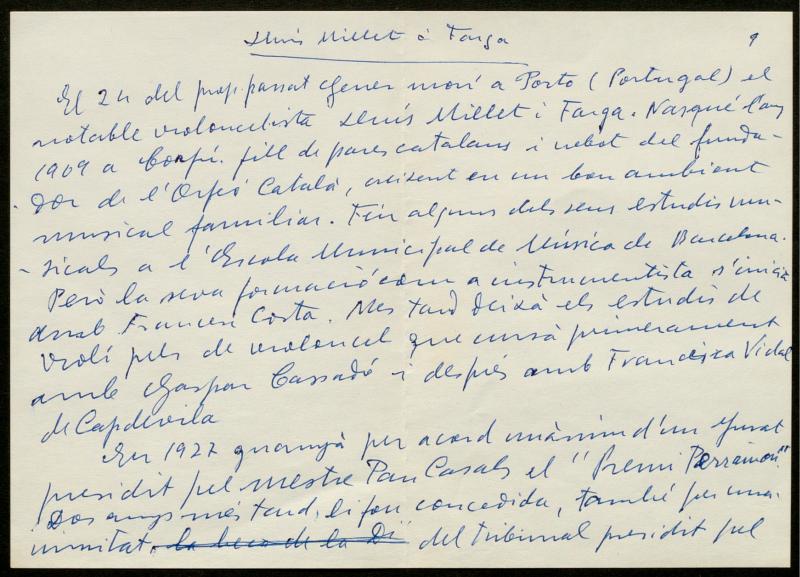 Lluís Millet i Farga
9
El 24 del prop. passat Gener morí a Porto (Portugal) el
notable violoncelista Lluís Millet i Farga. Nasqué l'any
1909 a fill de pares catalans i nebot del funda-
dor de l'Orfeó Català, creixent en un bon ambient
musical familiar. Féu alguns dels seus estudis mu-
sicals a l'Escola Municipal de Música de Barcelona.
Però la seva formació com a instrumentista s'inicià
amb Francesc Costa. Mes tard deixà els estudis de
violí pels de violoncel que cursà primerament
amb Gaspar Cassadó i després amb Francisca Vidal
de Capdevila
En 1927 guanyà per acord unànim d'un Jurat
presidit pel mestre Pau Casals el "Premi Parramon".
Dos anys més tard li fou concedida, també per una-
nimitat, la beca de la Di del tribunal presidit pel